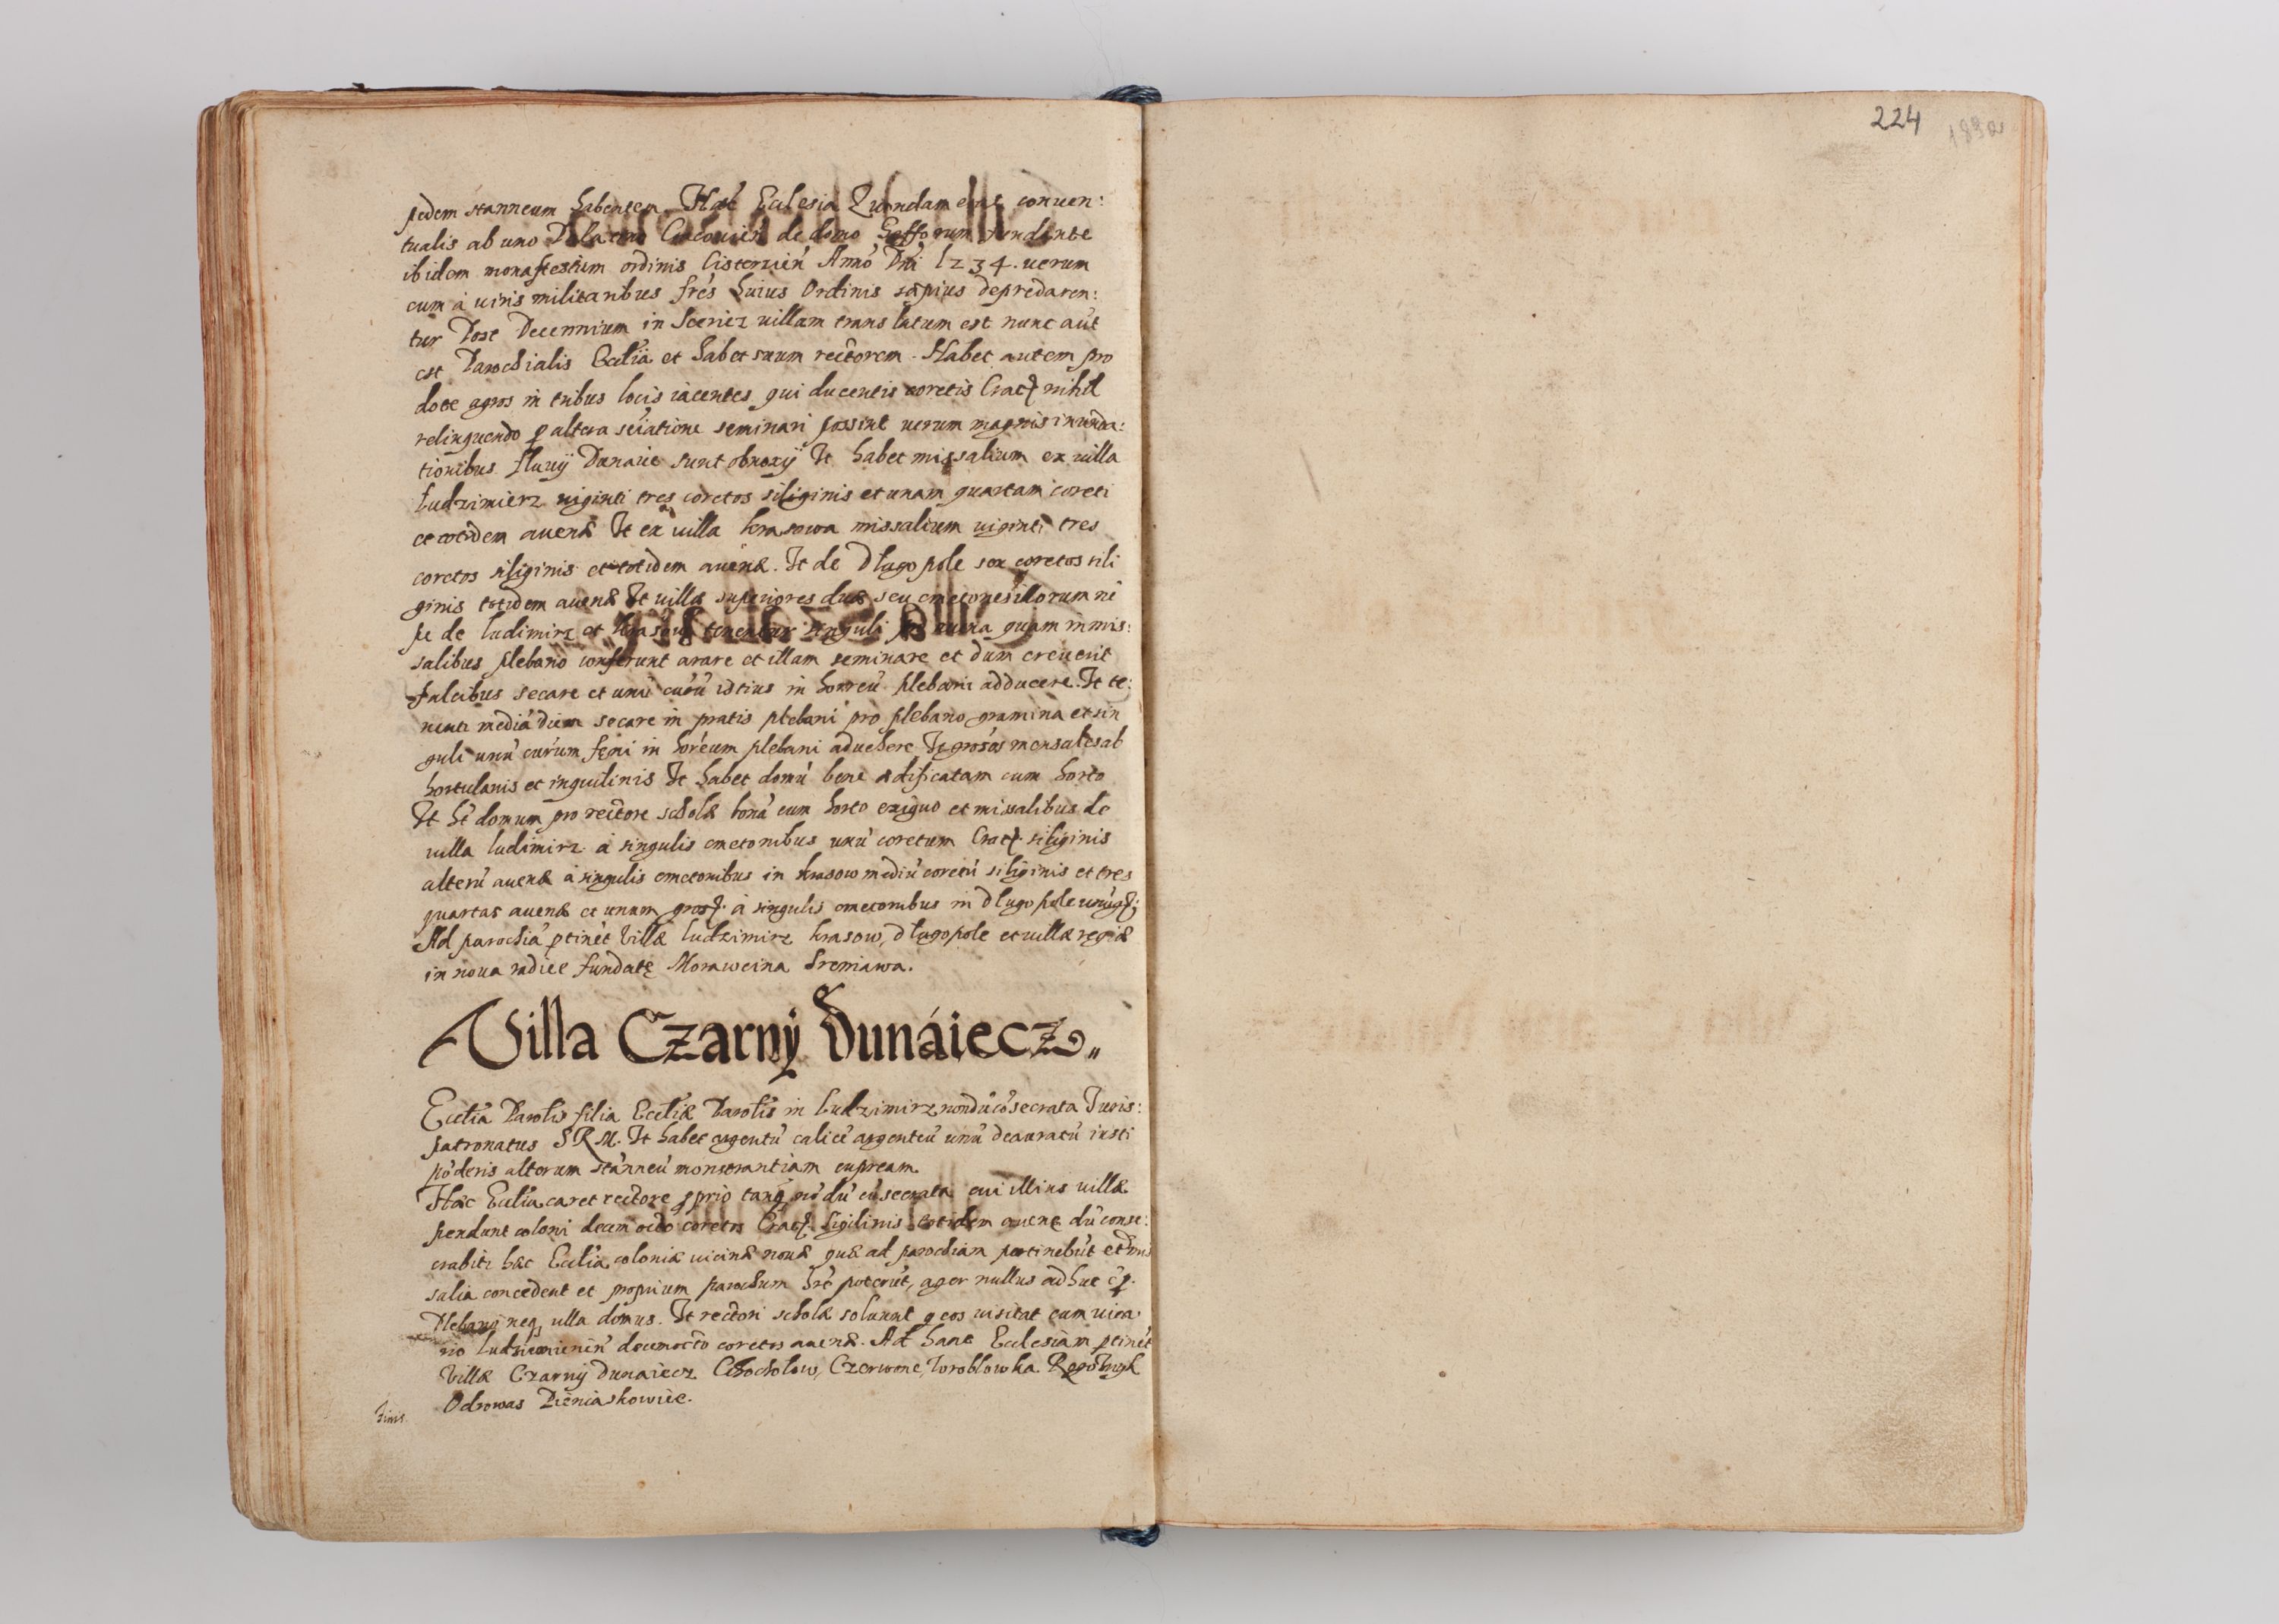 pedem stanneum habentem. Hæc Ecclesia Quondam erat conuen:
tualis ab uno Cracouień de domo Griffonum fundante
ibidem monasterium ordinis Cisterzień Anno Dni 1234. uerum
cum à uiris militaribus frēs huius Ordinis sæpius depredaren:
tur Post Decennium in Sceriez uillam translatum est nunc aūt
est Parochialis Ecctia et habet suum rectorem. Habet autem pro
dote agros in tribus locis iacentes qui ducentis coretis Crac nihil
relinquendo ꝑ altera seiatione seminari possint uerum magnis inunda:
tionibus fluuij Dunaiie sunt obnoxij It habet missalium ex uilla
Ludzimierz uiginti tres coretos siliginis et unam quartam coreti
et totidem auenæ It ex uilla Krasowa missalium uiginti tres
coretos siliginis et totidem auenæ. It de Dlugopole sex coretos sili
ginis totidem auenæ It uillæ superiores duæ seu cmetones illorum nē
pe de Ludimirz et Krasow tenentur singuli quam in mis:
salibus plebano conferunt arare et illam seminare et dum creuerit
falcibus secare et unū currū istius in horreū plebani adducere. It te:
nent mediā diem secare in pratis plebani pro plebano gramina et sin
guli unū currum feni in horeum plebani aduehere It grosos mensales ab
hortulanis et inquilinis It habet domū bene ædificatam cum horto
It ht domum pro rectore scholæ bonā cum horto exiguo et missalibus de
uilla Ludimirz à singulis cmetonibus unū coretum Crac siliginis
alterū auenæ à singulis cmetonibus in Krasow mediū coretū siliginis et tres
quartas auenæ et unum gros à singulis cmetonibus in Dlugopole
Ad parochiā ꝑtinēt Villæ Ludzimirz Krasow, Dlugopole et uillæ regiæ
in noua radice fundatę Morawcina Sreniawa.
Villa Czarnÿ Dunáiecz
Ecctia Parotis filia Ecctiæ Parotis in Ludzimirz nondū cōsecrata Juris:
patronatus SRM. It habet argentū calicē argenteū unū deauratū iusti
pōderis alterum stānneū monstrantiam cupream.
Hæc Ecctia caret rectore ꝓprio tanq̄ nō dū cōsecrata cui illius uillæ
pendunt coloni decem octo coretos Crac Sigilinis totidem auenę dū conse:
crabitr hæc Ecctia coloniæ uicinæ nouæ quæ ad parochiam pertinebūt et mis
salia concedent et proprium parochum hrē poterūt, ager nullus adhuc ē ꝓ
Plebano neq, ulla domus. It rectori scholæ soluunt q eos uisitat cum uica
rio Ludzimirień decemocto coretos auenæ. Ad hanc Ecclesiam ꝑtinēt
Villæ Czarnÿ Dunaiecz Chocholow, Czerwone, Wroblowka
Odrowas Pieniaskowice.
Finis
224